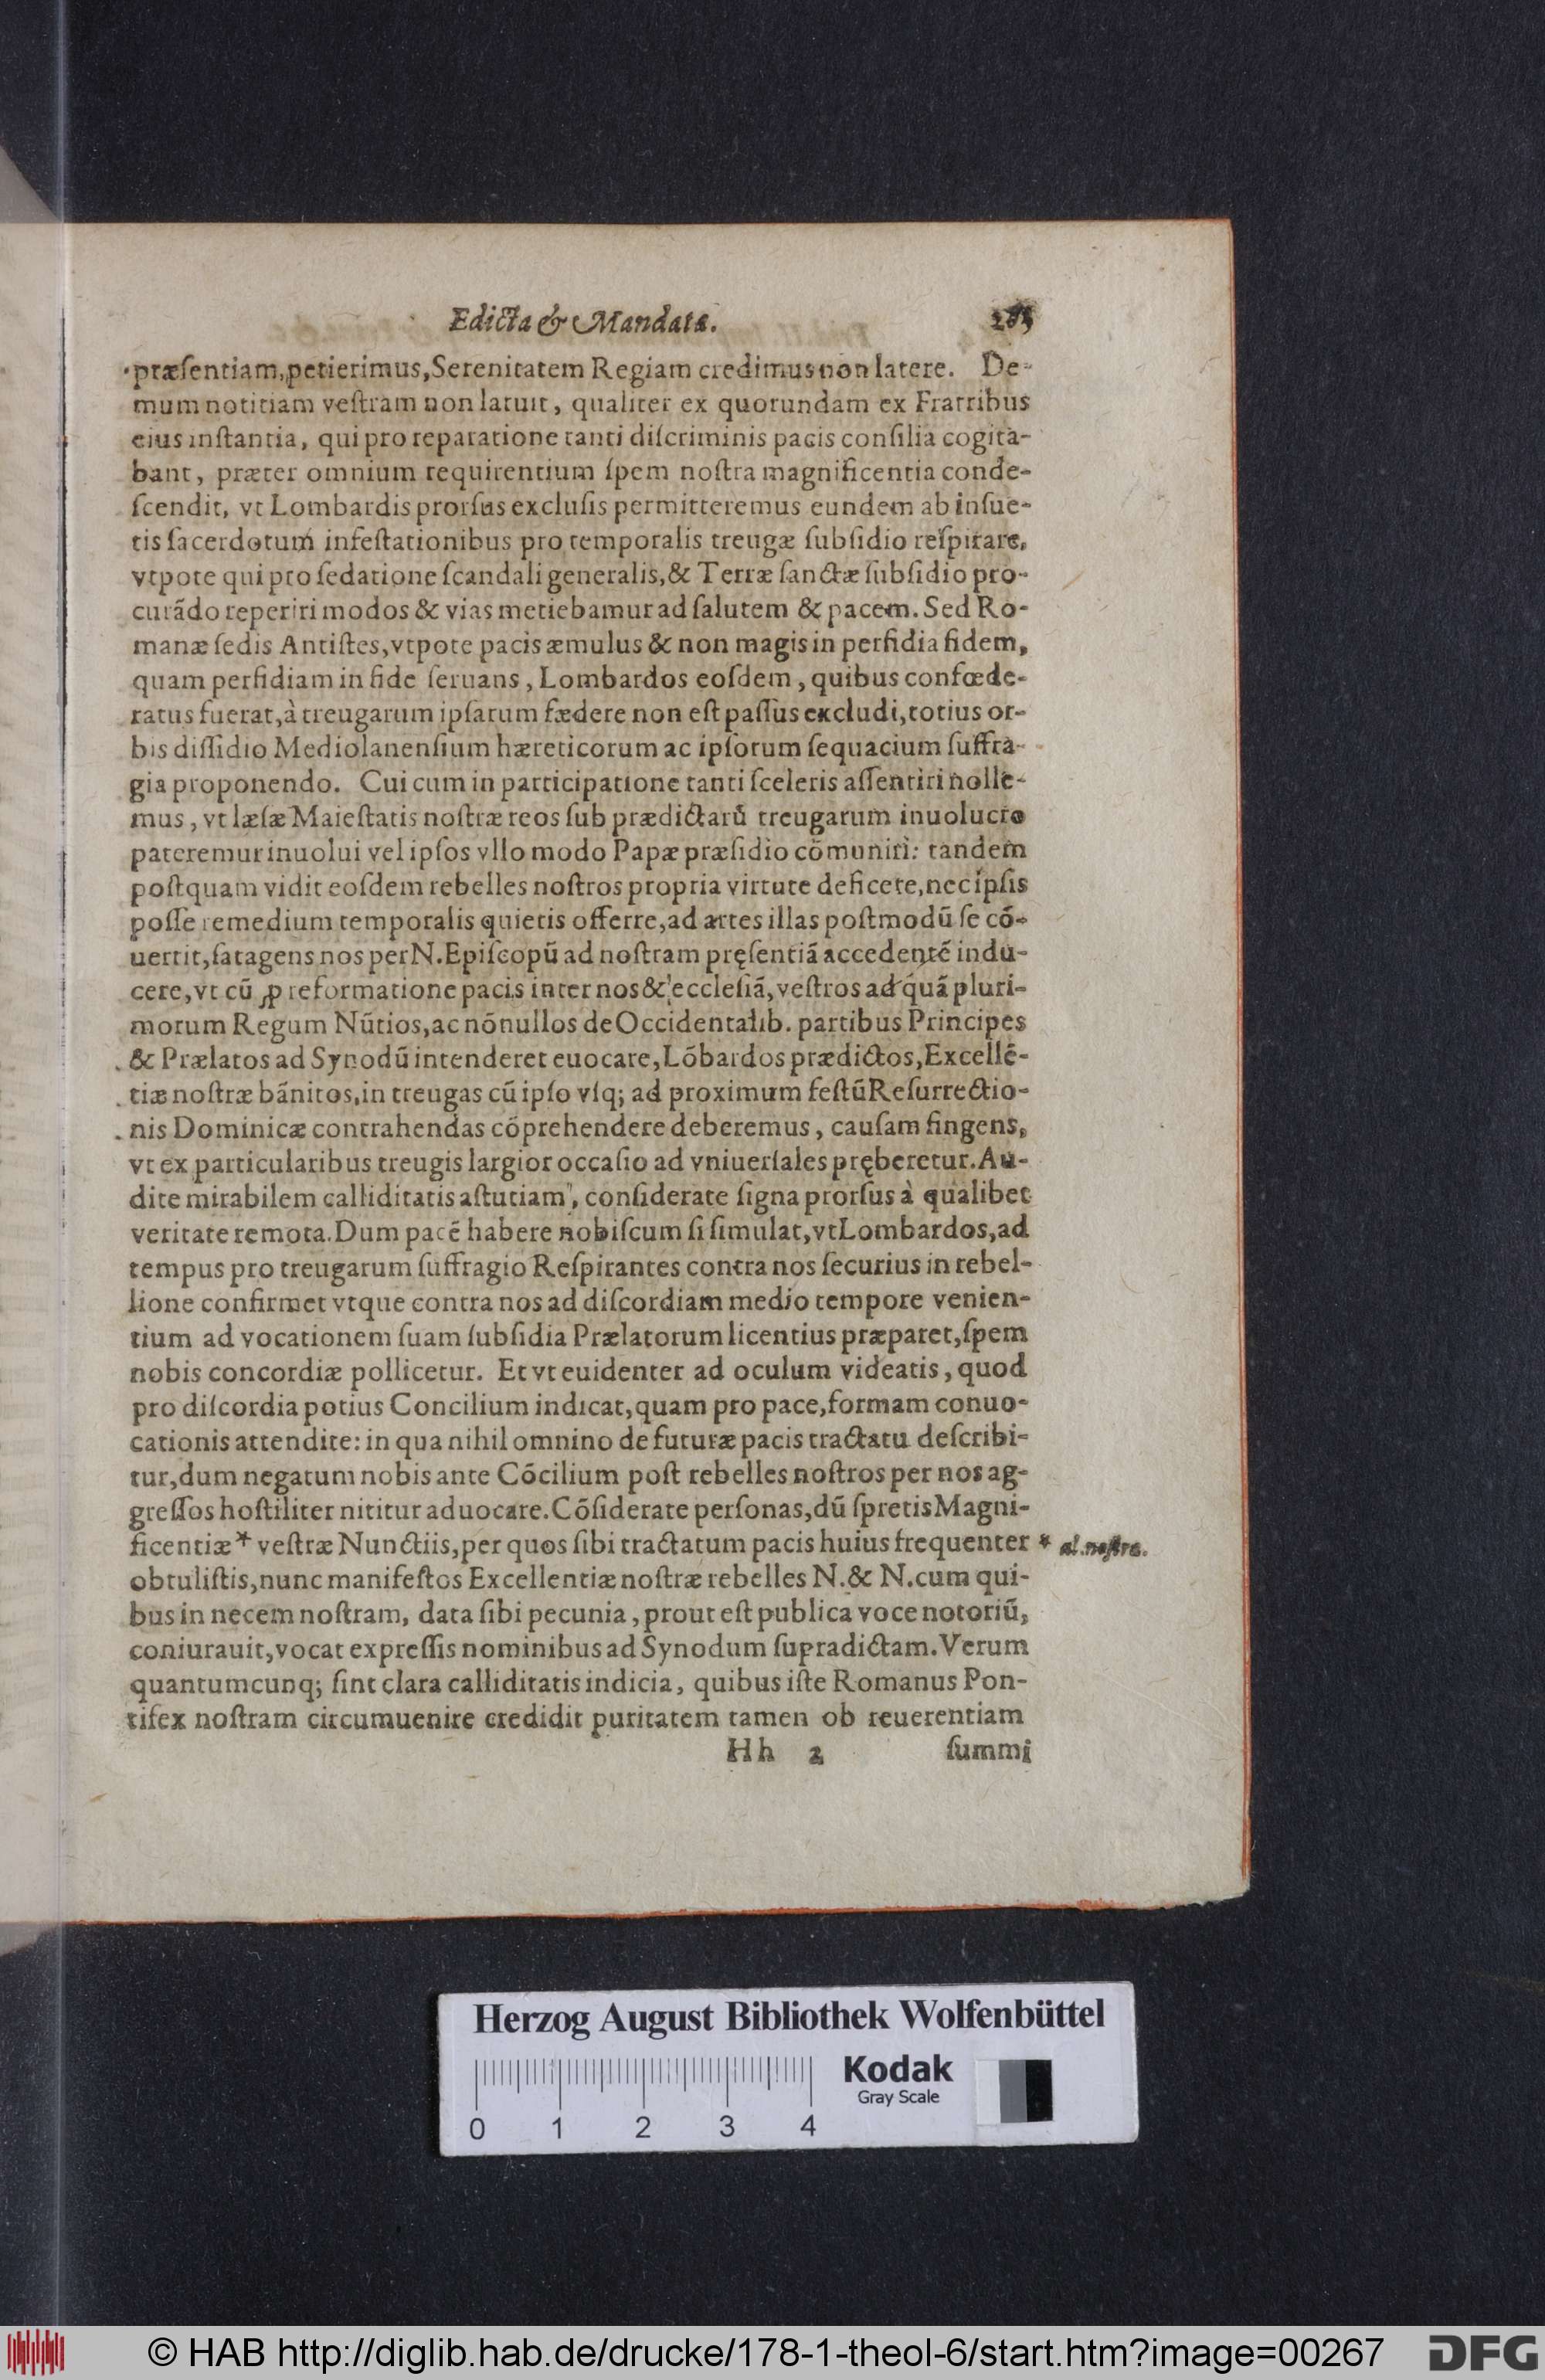 Edicta & Mandata.
præſentiam, petierimus, Serenitatem Regiam credimus non latere. De-
mum notitiam veſtram non latuit, qualiter ex quorundam ex Fratribus
eius inſtantia, qui pro reparatione tanti diſcriminis pacis conſilia cogita-
bant, præter omnium requirentium ſpem noſtra magnificentia conde-
ſcendit, vt Lombardis prorſus excluſis permitteremus eundem ab inſue-
tis ſacerdotum infeſtationibus pro temporalis treugæ ſubſidio reſpirare,
vtpote qui pro ſedatione ſcandali generalis, & Terræ ſanctæ ſubſidio pro-
curãdo reperiri modos & vias metiebamur ad ſalutem & pacem. Sed Ro-
manæ ſedis Antiſtes, vtpote pacis æmulus & non magis in perfidia fidem,
quam perfidiam in fide ſeruans, Lombardos eoſdem, quibus confœde-
ratus fuerat, à treugarum ipſarum fædere non eſt paſſus excludi, totius or-
bis diſſidio Mediolanenſium hæreticorum ac ipſorum ſequacium ſuffra-
gia proponendo. Cui cum in participatione tanti ſceleris aſſentiri nolle-
mus, vt læſæ Maieſtatis noſtræ reos ſub prædictarũ treugarum inuolucro
pateremur inuolui vel ipſos vllo modo Papæ præſidio cõmuniri: tandem
poſtquam vidit eoſdem rebelles noſtros propria virtute deficere, nec ipſis
poſſe remedium temporalis quietis offerre, ad artes illas poſtmodũ ſe cõ-
uertit, ſatagens nos per N. Epiſcopũ ad noſtram pręſentiã accedentẽ indu-
cere, vt cũ ꝓ reformatione pacis inter nos & eccleſiã, veſtros ad quã pluri-
morum Regum Nũtios, ac nõnullos de Occidentalib. partibus Principes
& Prælatos ad Synodũ intenderet euocare, Lõbardos prædictos, Excellẽ-
tiæ noſtræ bãnitos, in treugas cũ ipſo vſq; ad proximum feſtũ Reſurrectio-
nis Dominicæ contrahendas cõprehendere deberemus, cauſam fingens,
vt ex particularibus treugis largior occaſio ad vniuerſales pręberetur. Au-
dite mirabilem calliditatis aſtutiam, conſiderate ſigna prorſus à qualibet
veritate remota. Dum pacẽ habere nobiſcum ſi ſimulat, vt Lombardos, ad
tempus pro treugarum ſuffragio Reſpirantes contra nos ſecurius in rebel-
lione confirmet vtque contra nos ad diſcordiam medio tempore venien-
tium ad vocationem ſuam ſubſidia Prælatorum licentius præparet, ſpem
nobis concordiæ pollicetur. Et vt euidenter ad oculum videatis, quod
pro diſcordia potius Concilium indicat, quam pro pace, formam conuo-
cationis attendite: in qua nihil omnino de futuræ pacis tractatu deſcribi-
tur, dum negatum nobis ante Cõcilium poſt rebelles noſtros per nos ag-
greſſos hoſtiliter nititur aduocare. Cõſiderate perſonas, dũ ſpretis Magni-
ficentiæ * veſtræ Nunctiis, per quos ſibi tractatum pacis huius frequenter
* al. noſtra.
obtuliſtis, nunc manifeſtos Excellentiæ noſtræ rebelles N. & N. cum qui-
bus in necem noſtram, data ſibi pecunia, prout eſt publica voce notoriũ,
coniurauit, vocat expreſſis nominibus ad Synodum ſupradictam. Verum
quantumcunq; ſint clara calliditatis indicia, quibus iſte Romanus Pon-
tifex noſtram circumuenire credidit puritatem tamen ob reuerentiam
Hh 2 ſummi
Herzog August Bibliothek Wolfenbüttel
Kodak
Gray Scale
0 1 2 3 4
© HAB http://diglib.hab.de/drucke/178-1-theol-6/start.htm?image=00267
DFG